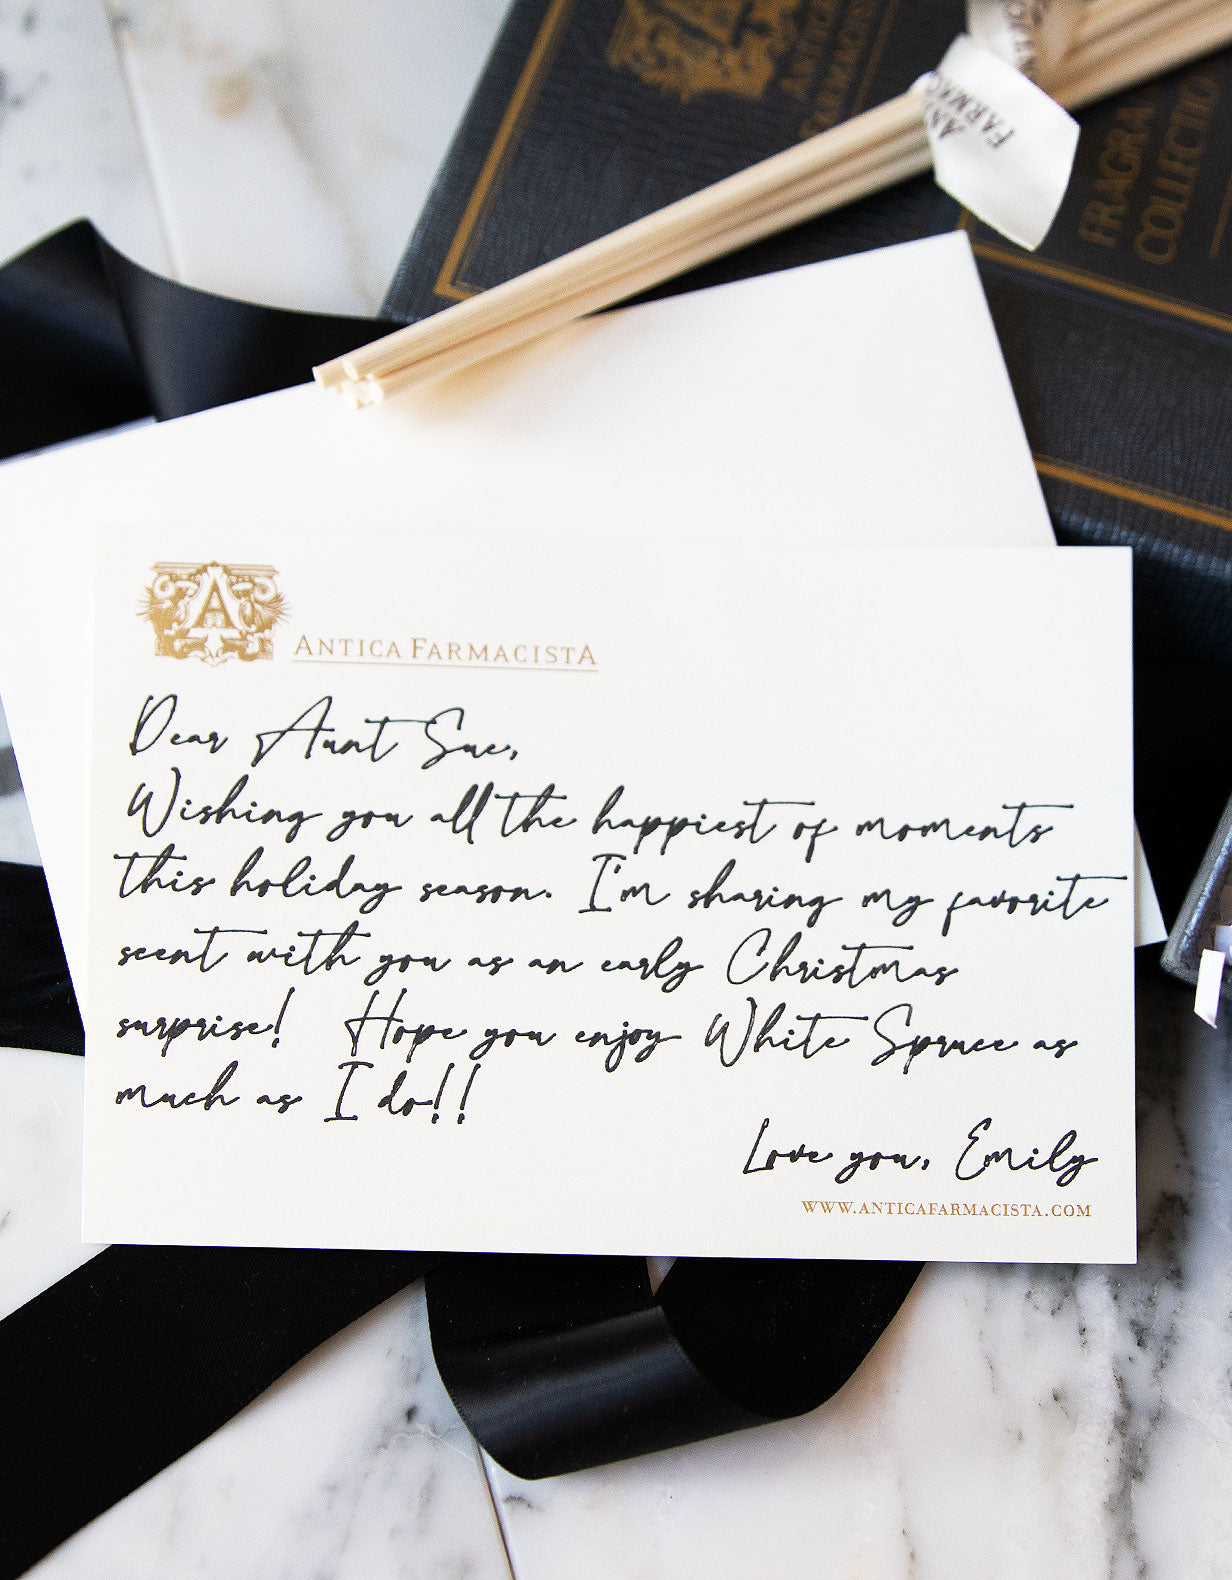 ANTICA
FARMACIS
FARMAC
FRAGRA
COLLECTION
A
ANTICA FARMACISTA
Dear Aunt Sue,
Wishing you all the happiest of moments
this holiday season. I'm sharing my favorite
scent with you as an early Christmas
surprise! Hope you enjoy White Spruce as
much as I do!!
Love you, Emily
WWW.ANTICAFARMACISTA.COM